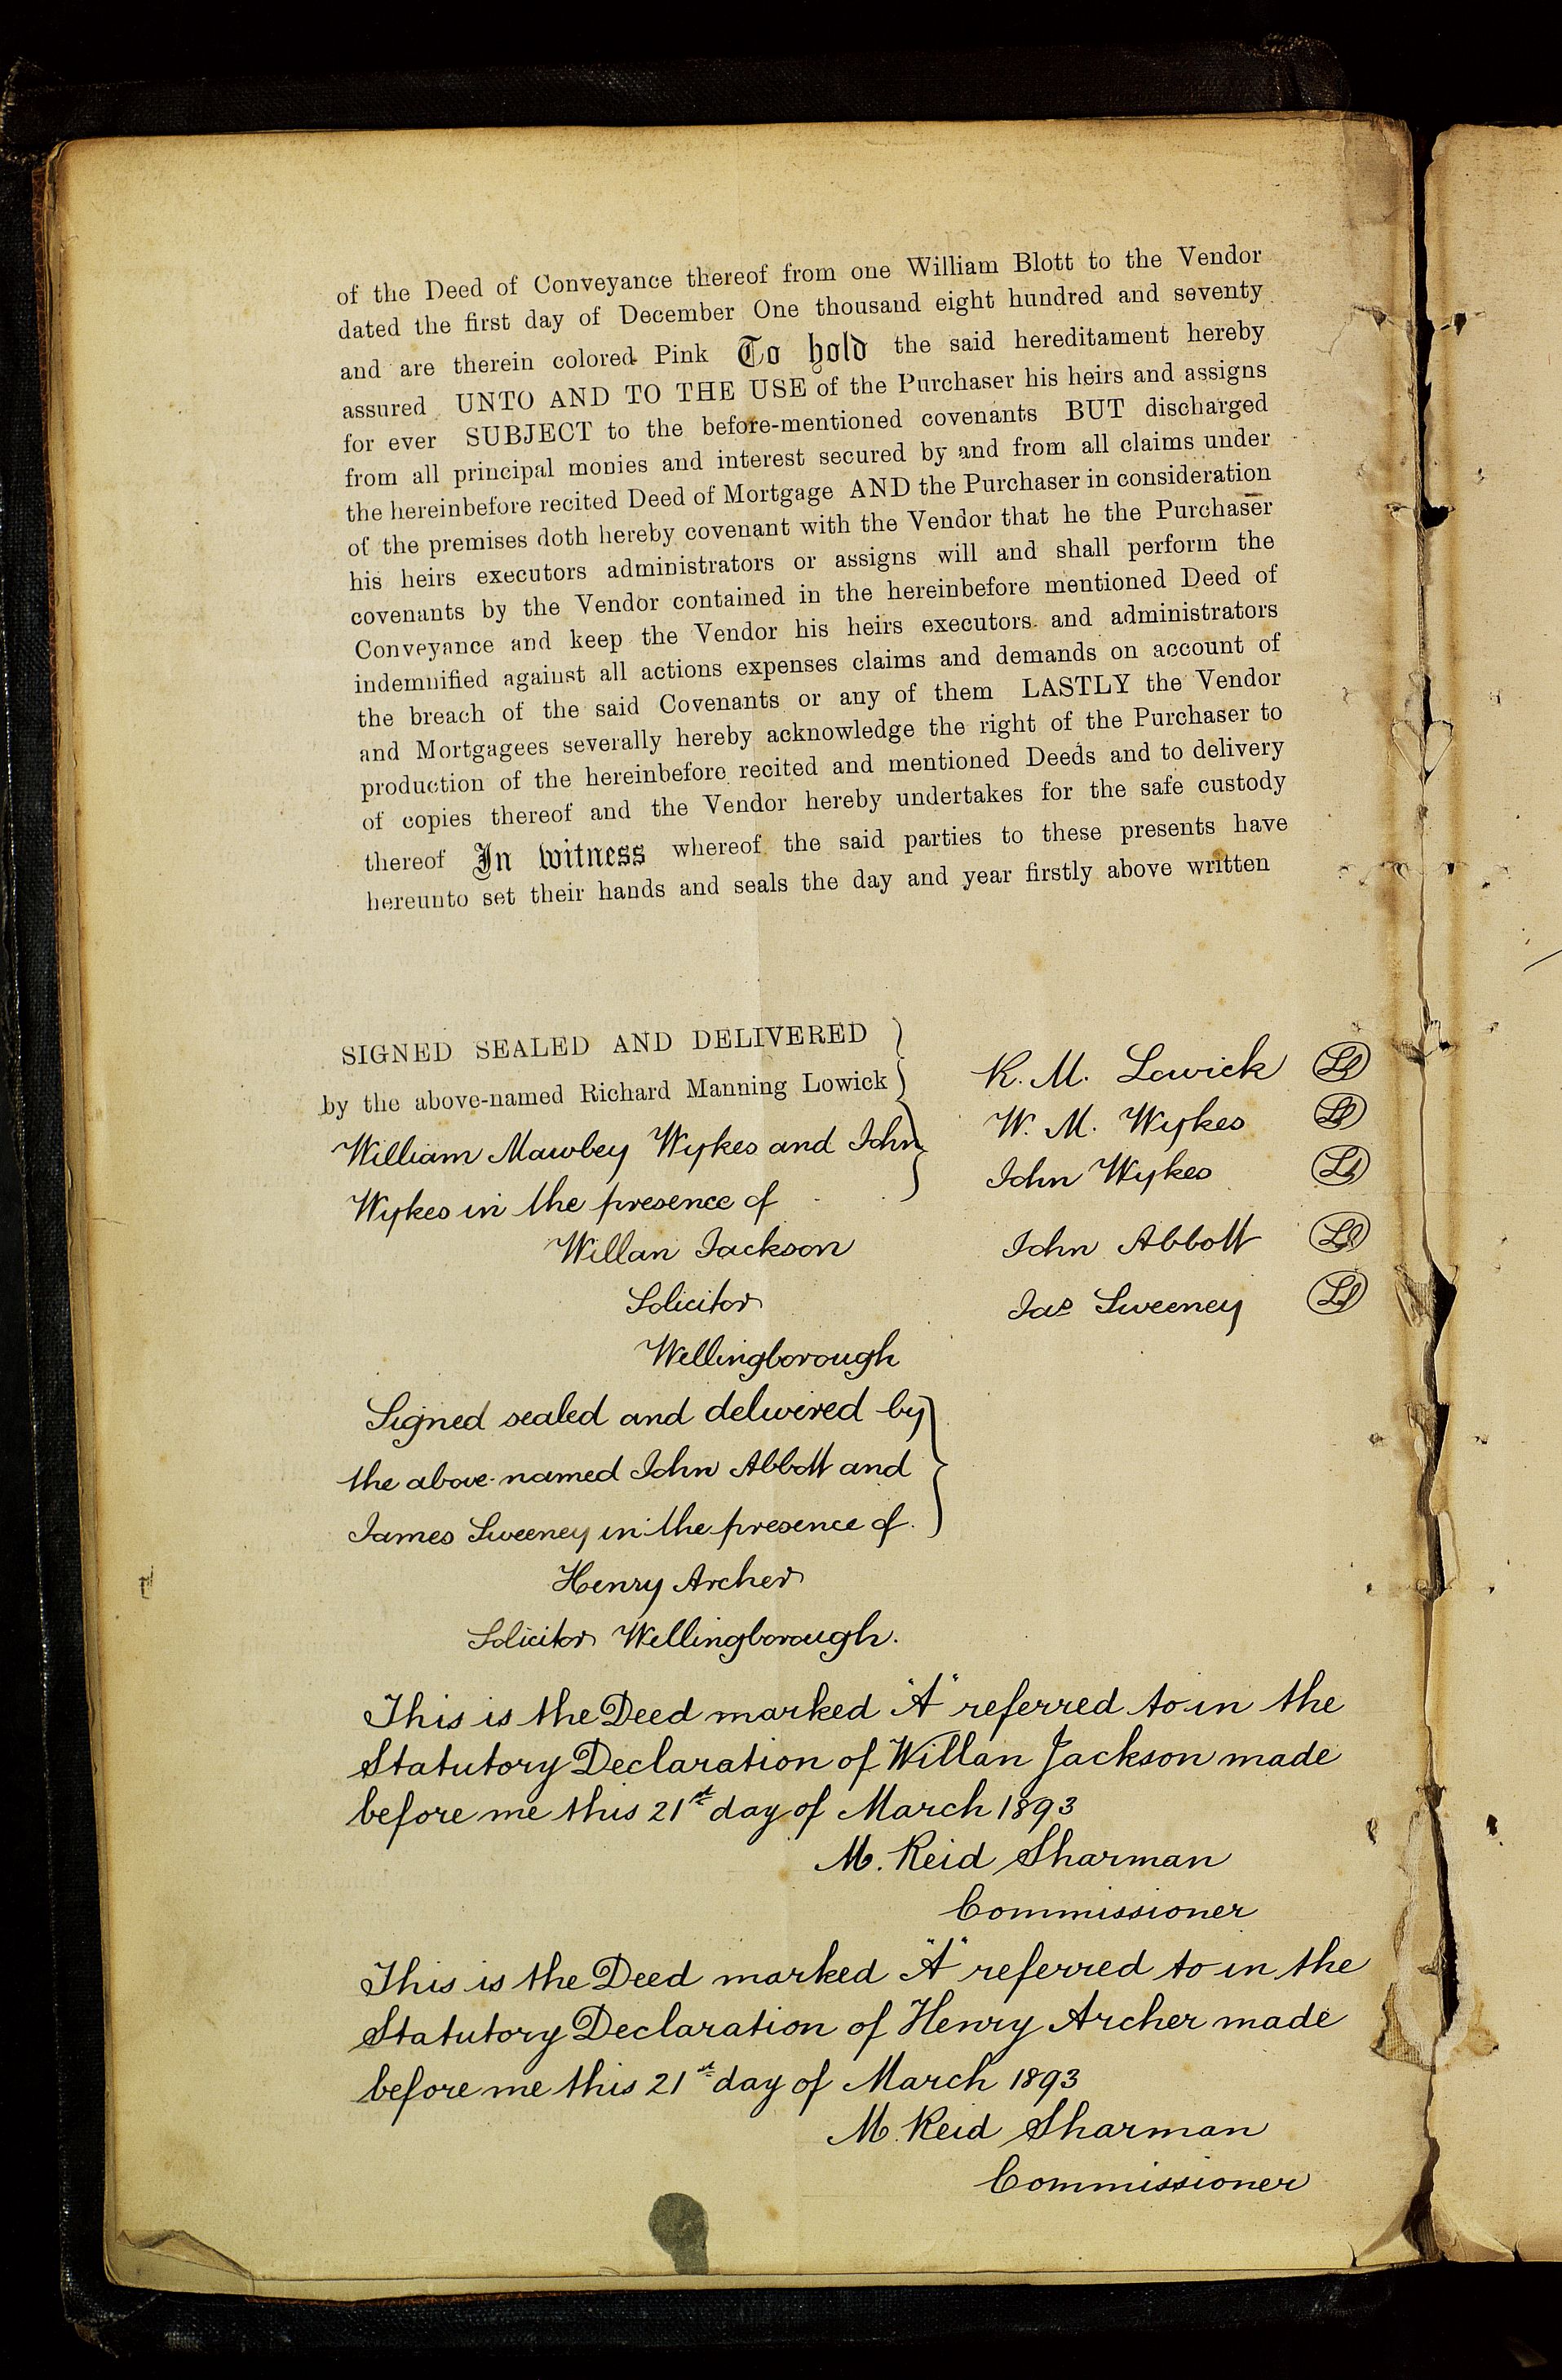 of the Deed of Conveyance thereof from one William Blott to the Vendor
dated the first day of December One thousand eight hundred and seventy
and are therein colored Pink To hold the said hereditament hereby
assured UNTO AND TO THE USE of the Purchaser his heirs and assigns
for ever SUBJECT to the before-mentioned covenants BUT discharged
from all principal monies and interest secured by and from all claims under
the hereinbefore recited Deed of Mortgage AND the Purchaser in consideration
of the premises doth hereby covenant with the Vendor that he the Purchaser
his heirs executors administrators or assigns will and shall perform the
covenants by the Vendor contained in the hereinbefore mentioned Deed of
Conveyance and keep the Vendor his heirs executors and administrators
indemnified against all actions expenses claims and demands on account of
the breach of the said Covenants or any of them LASTLY the Vendor
and Mortgagees severally hereby acknowledge the right of the Purchaser to
production of the hereinbefore recited and mentioned Deeds and to delivery
of copies thereof and the Vendor hereby undertakes for the safe custody
thereof In witness whereof the said parties to these presents have
hereunto set their hands and seals the day and year firstly above written
SIGNED SEALED AND DELIVERED
by the above-named Richard Manning Lowick
William Mawbey Wykes and John
Wykes in the presence of
Willan Jackson
Solicitor
Wellingborough
R. M. Lowick LS
W. M. Wykes LS
John Wykes LS
John Abbott LS
Jas Sweeney LS
Signed sealed and delivered by
the above-named John Abbott and
James Sweeney in the presence of
Henry Archer
Solicitor Wellingborough.
This is the Deed marked "A" referred to in the
Statutory Declaration of Willan Jackson made
before me this 21st day of March 1893
M. Reid Sharman
Commissioner
This is the Deed marked "A" referred to in the
Statutory Declaration of Henry Archer made
before me this 21st day of March 1893
M. Reid Sharman
Commissioner